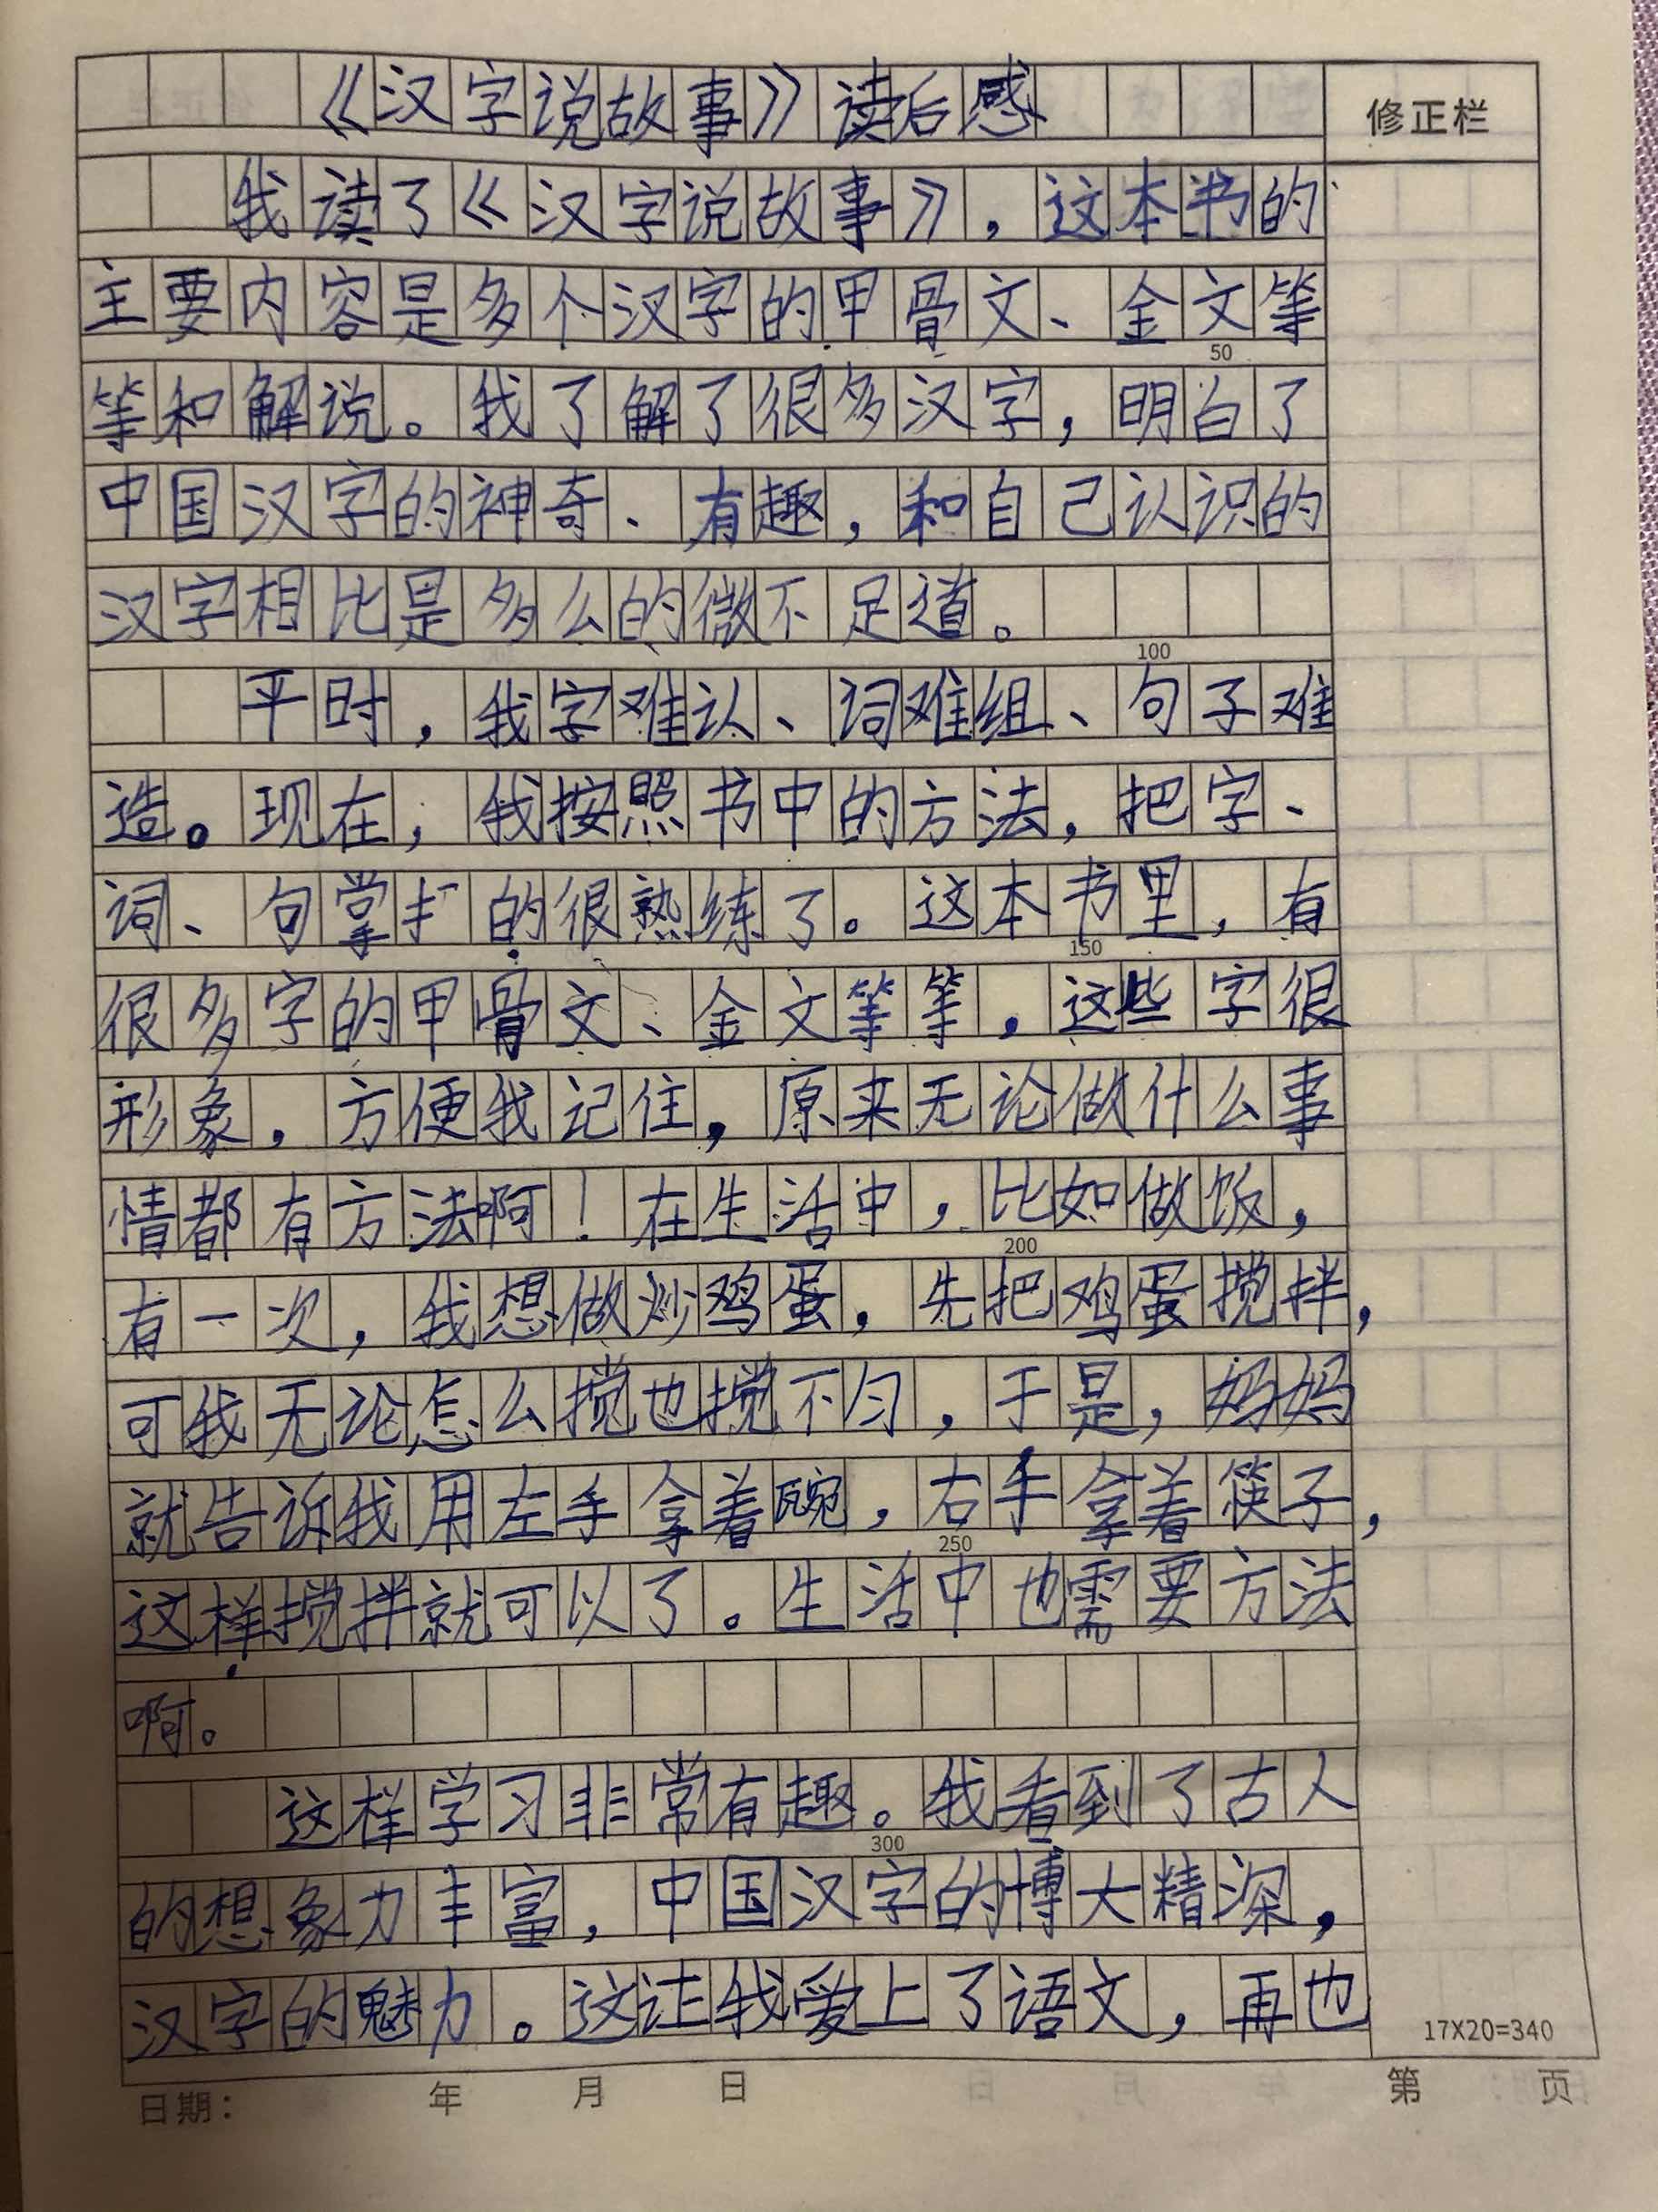 《汉字说故事》读后感
修正栏
我读了《汉字说故事》，这本书的
主要内容是多个汉字的甲骨文、金文等
50
等和解说。我了解了很多汉字，明白了
中国汉字的神奇、有趣，和自己认识的
汉字相比是多么的微不足道。
100
平时，我字难认、词难组、句子难
造。现在，我按照书中的方法，把字、
词、句掌扩的很熟练了。这本书里，有
150
很多字的甲骨文、金文等等，这些字很
形象，方便我记住，原来无论做什么事
情都有方法啊！在生活中，比如做饭，
200
有一次，我想做炒鸡蛋，先把鸡蛋搅拌，
可我无论怎么搅也搅不匀，于是，妈妈
就告诉我用左手拿着碗，右手拿着筷子，
250
这样搅拌就可以了。生活中也需要方法
啊。
这样学习非常有趣。我看到了古人
300
的想象力丰富，中国汉字的博大精深，
汉字的魅力。这让我爱上了语文，再也
17X20=340
日期： 年 月 日 第 页